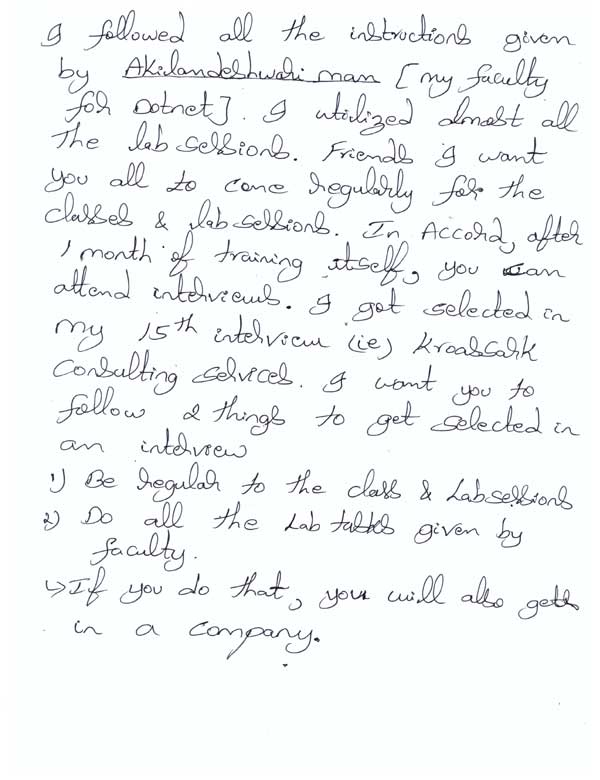 I followed all the instructions given
by Akilandeshwari mam [my faculty
for Dotnet]. I utilized almost all
the lab sessions. Friends I want
you all to come regularly for the
classes & lab sessions. In Accord, after
1 month of training itself, you can
attend interviews. I got selected in
my 15th interview (ie)
Consulting Services. I want you to
follow 2 things to get selected in
an interview
1) Be regular to the class & Lab sessions
2) Do all the Lab tasks given by
faculty.
↳ If you do that, you will also get
in a company.